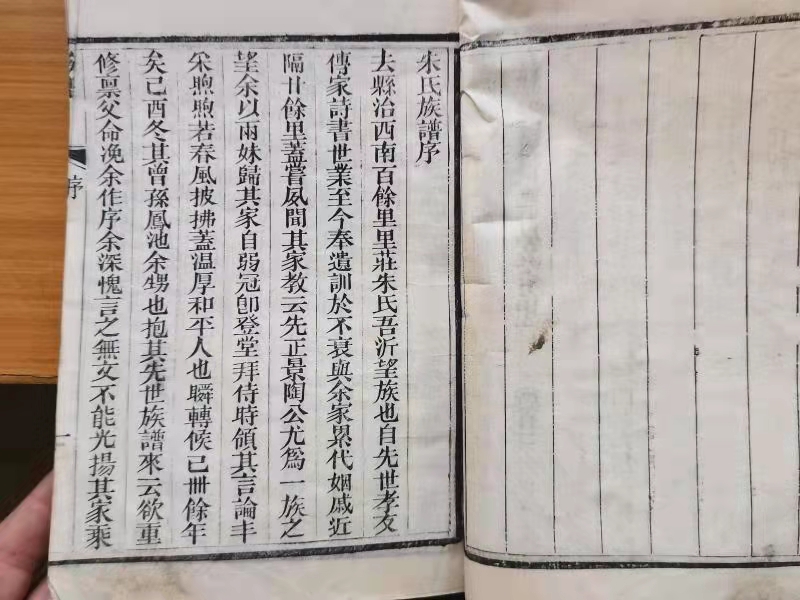 朱氏族譜序
去縣治西南百餘里里莊朱氏吾沂望族也自先世孝友
傳家詩書世業至今奉遺訓於不衰與余家累代姻戚近
隔廿餘里蓋嘗夙聞其家教云先正景陶公尤爲一族之
望余以兩妹歸其家自弱冠卽登堂拜侍時領其言論丰
采煦煦若春風披拂蓋温厚和平人也瞬轉候已卌餘年
矣己酉冬其曾孫鳳池余甥也抱其先世族譜來云欲重
修禀父命浼余作序余深愧言之無文不能光揚其家乘
序
一